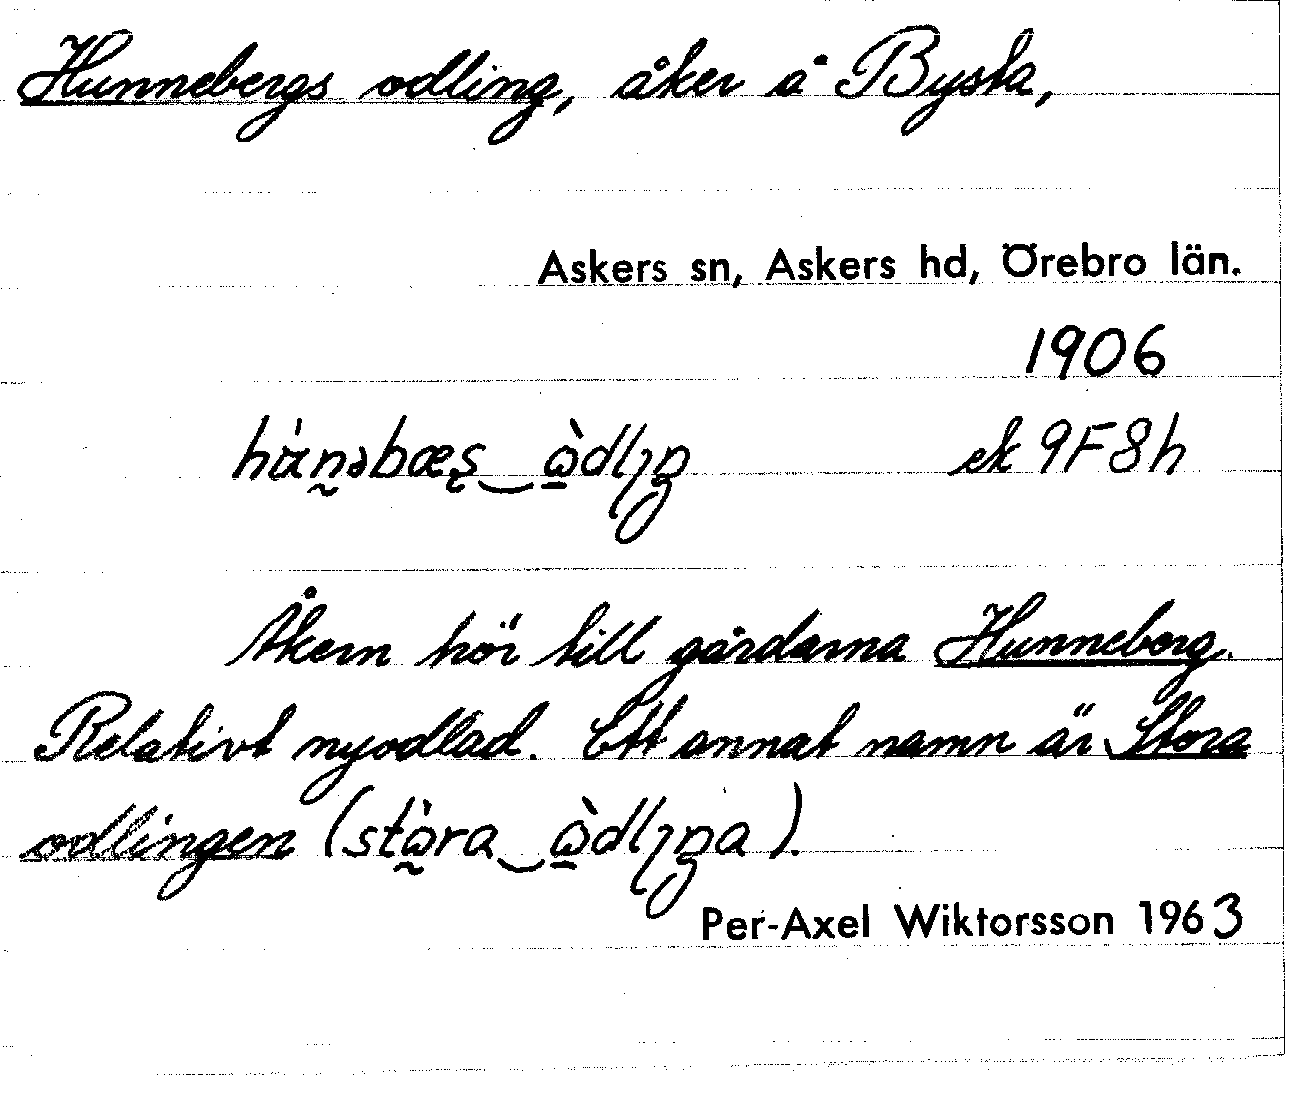 Hunnebergs odling, åker å Bysta,
Askers sn, Askers hd, Örebro län.
1906
ek 9F8h
Åkern hör till gårdarna Hunneberg.
Relativt nyodlad. Ett annat namn är Stora
odlingen
Per-Axel Wiktorsson 1963